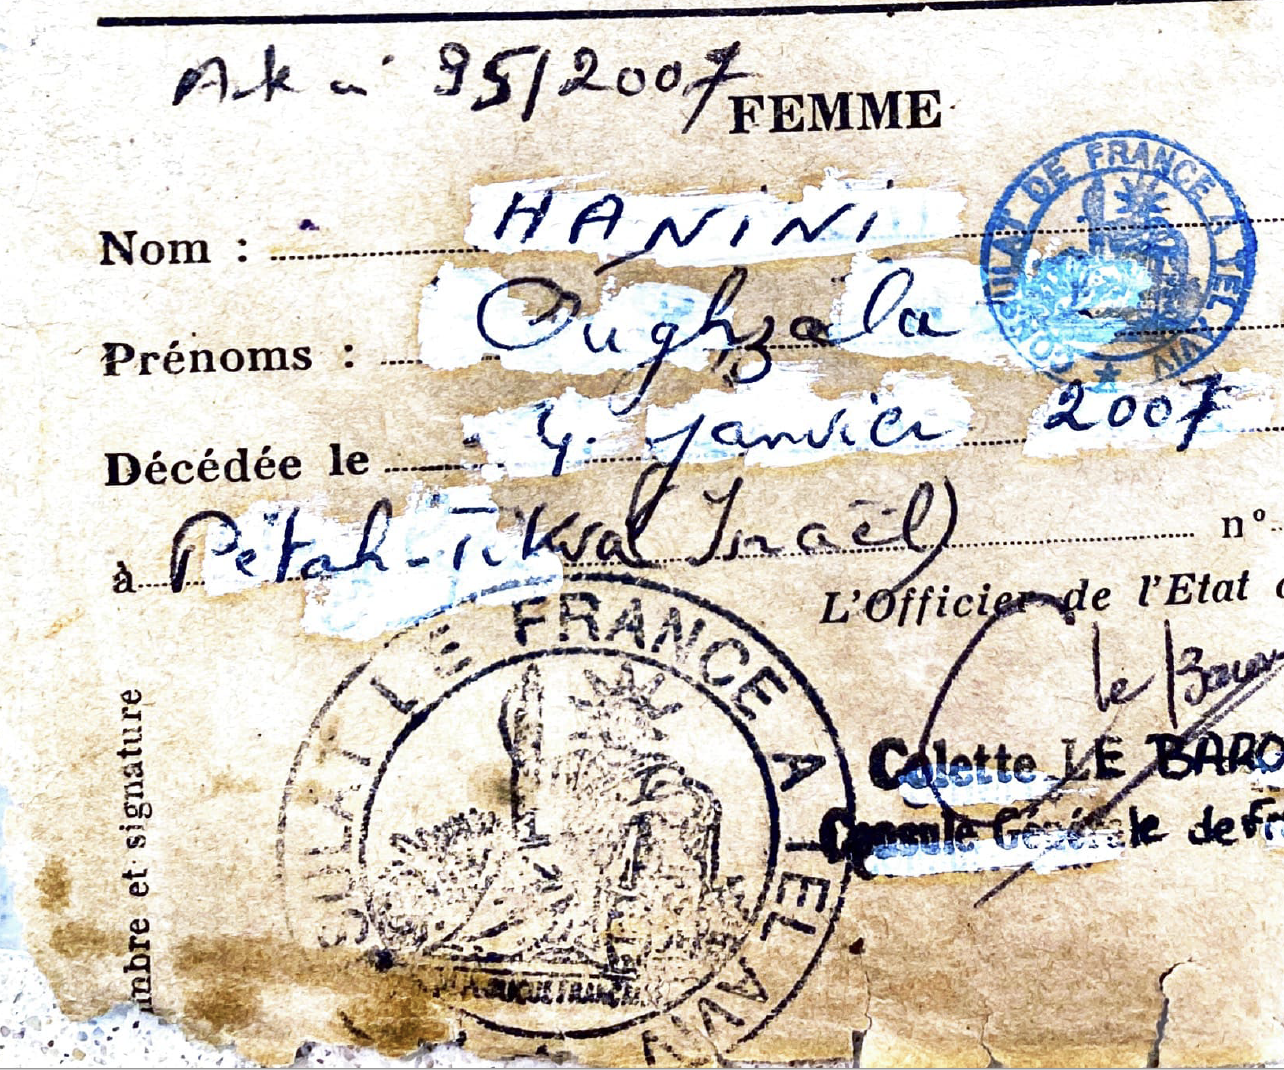 Ak n° 95/2007
FEMME
Nom : HANINI
Prénoms : Oughzala
Décédée le 4 janvier 2007
à Petah-Tikva (Israël) n°
L'Officier de l'Etat
le Baron
Colette LE BARO
Consule Générale de Fra
CONSULAT DE FRANCE A TEL AVIV
SULAT LE FRANCE A TEL AVIV
mbre et signature